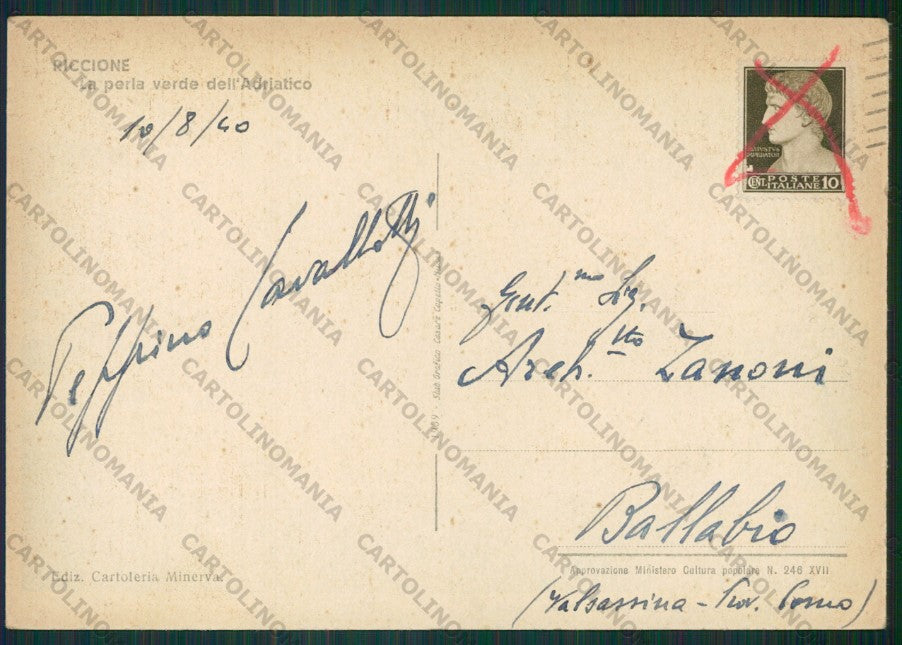 RICCIONE
La perla verde dell'Adriatico
10/8/40
Peppino Cavallotti
AVGVSTVS
IMPERATOR
CENT. POSTE ITALIANE 10
Gent.mo Sig.
Arch.tto Zanoni
Ballabio
(Valsassina - Prov. Como)
Approvazione Ministero Cultura popolare N. 246 XVII
Ediz. Cartoleria Minerva.
CARTOLINOMANIA